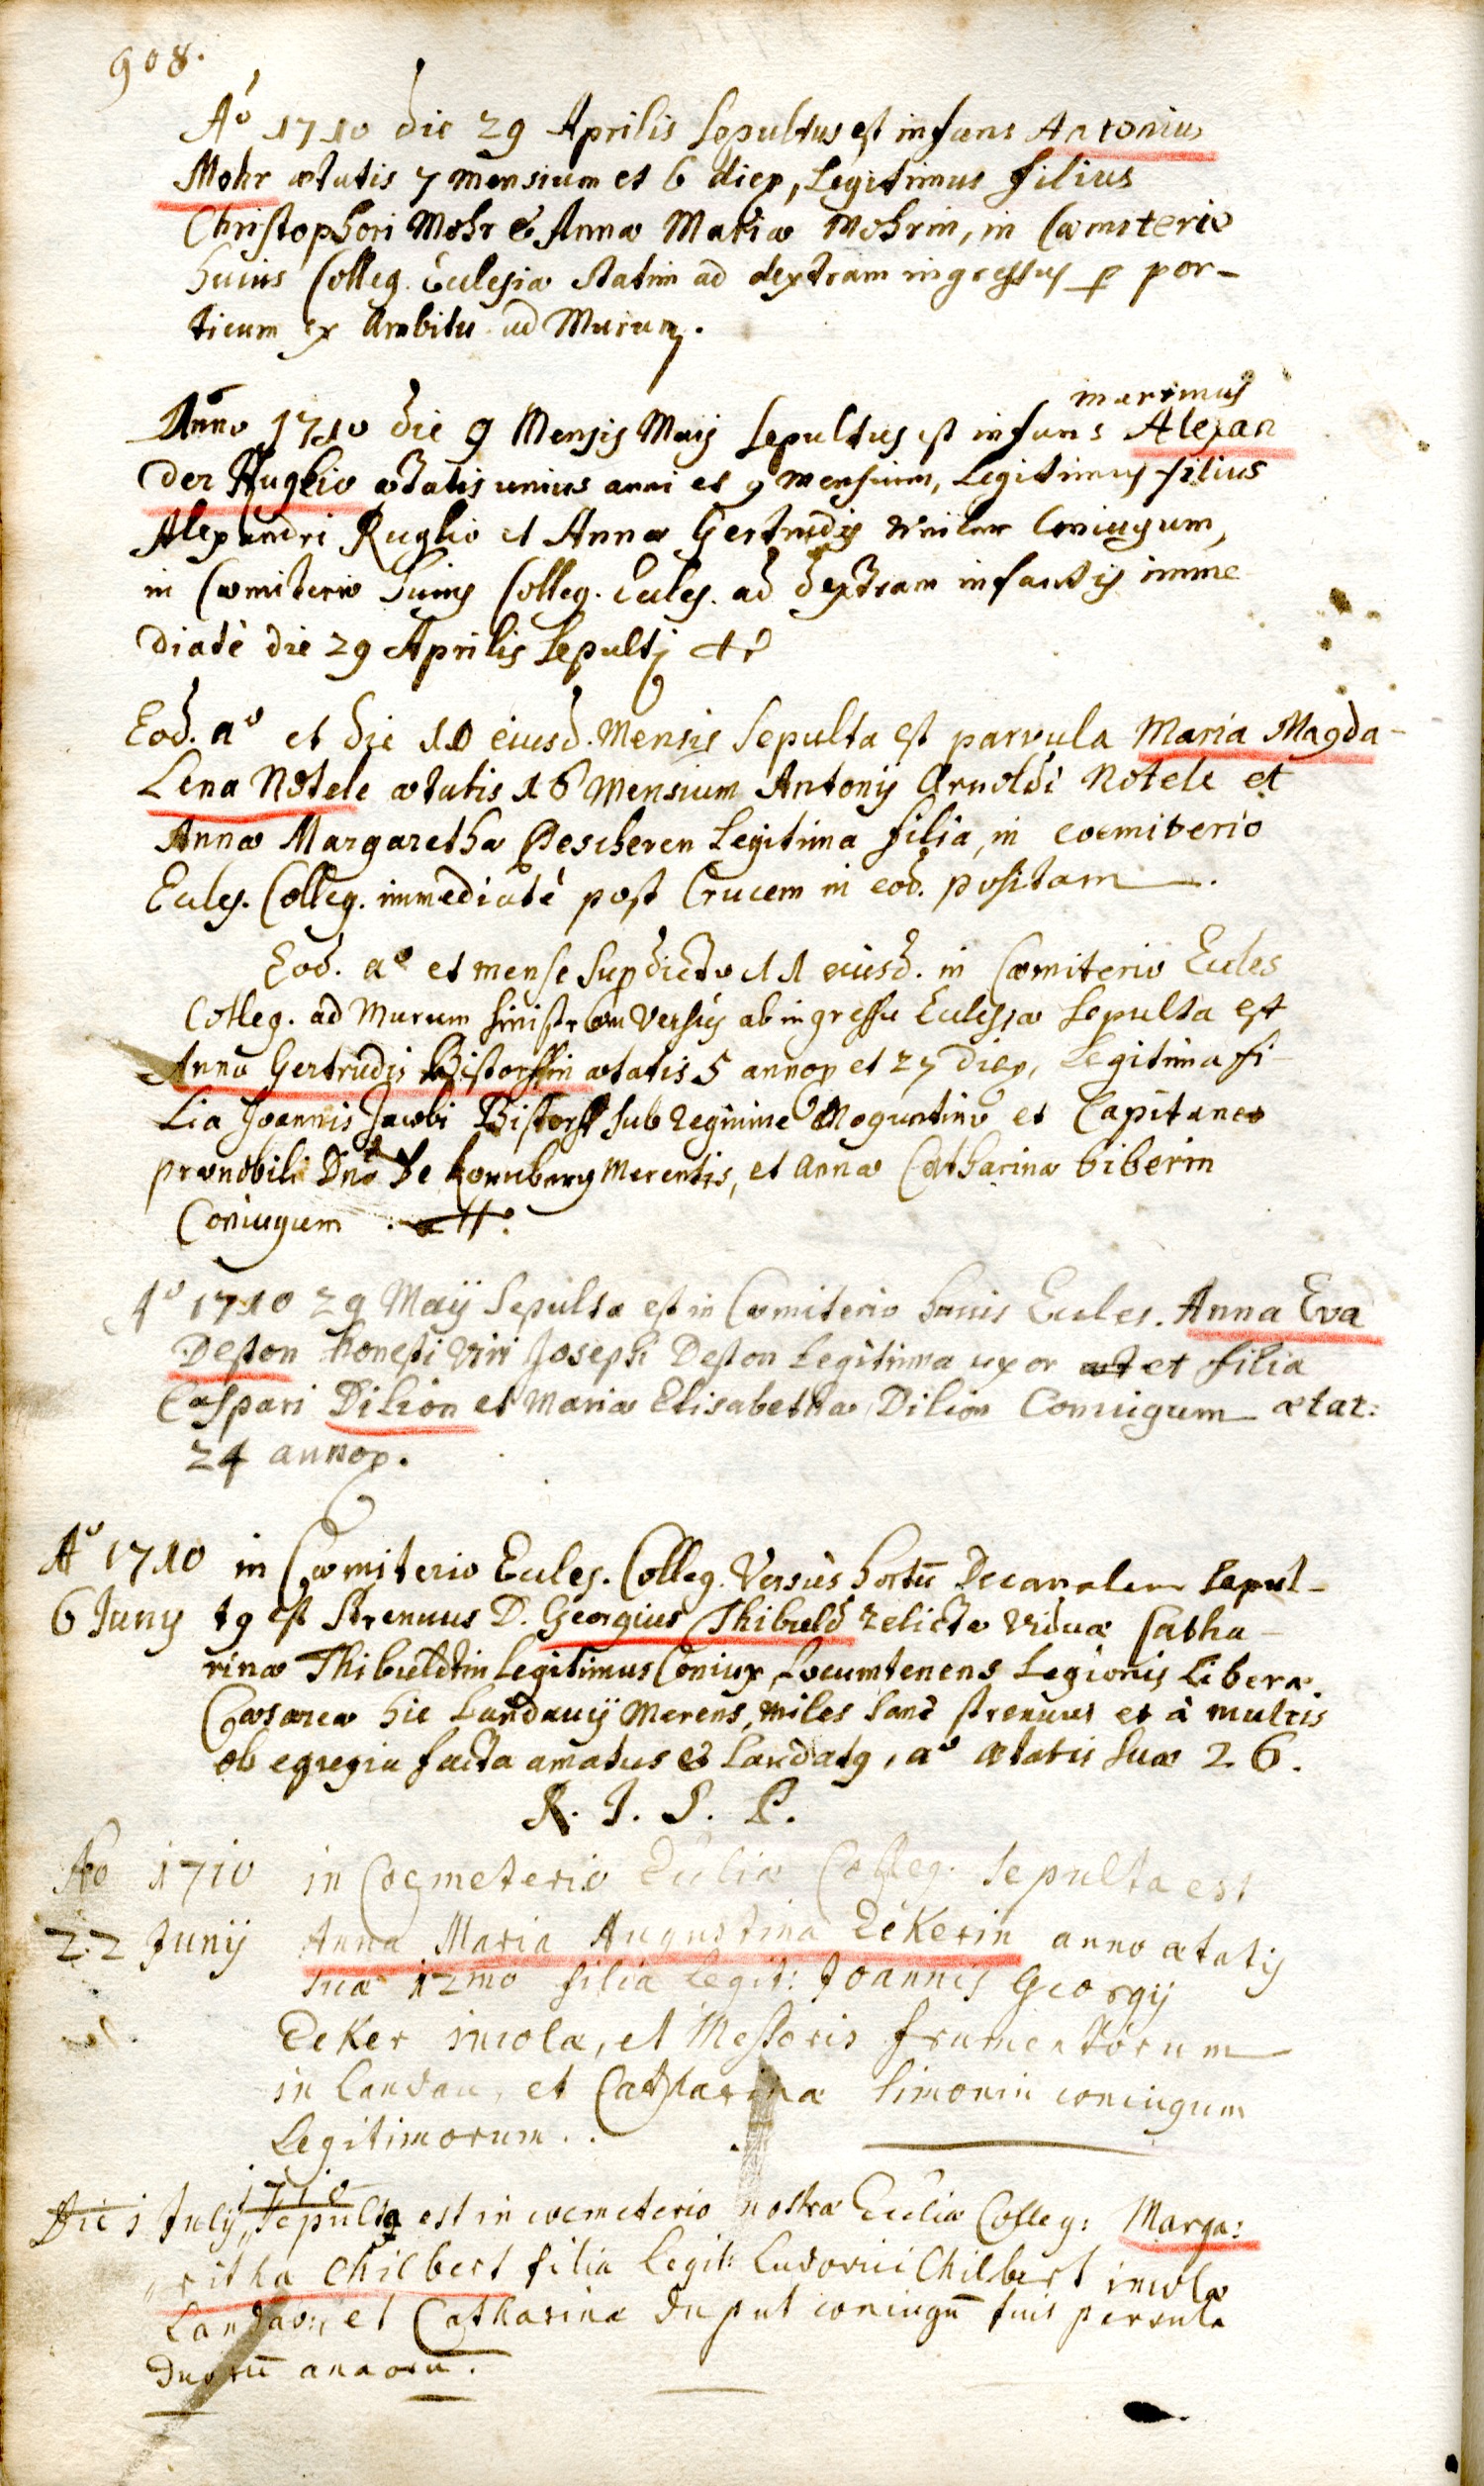 908.
Aº 1710 die 29 Aprilis Sepultus est infans Antonius
Mohr ætatis 7 mensium et 6 dierꝝ, Legitimus filius
Christophori Mohr & Annæ Mariæ Mohrin, in Cæmiterio
huius Colleg. Ecclesiæ statim ad dextram ingressus ꝑ por-
ticum ex Ambitu ad Murum.
maximus
Anno 1710 die 9 Mensis Maij Sepultus est infans Alexan
der Ruglio ætatis unius anni et 9 mensium, Legitimus filius
Alexandri Ruglio et Annæ Gertrudis Coniugum,
in Cæmiterio huius Colleg. Eccles. ad dextram infantis imme
diatè die 29 Aprilis Sepulti
Eod. aº et die 10 eiusd. Mensis Sepulta est parvula Maria Magda-
Lena Notele ætatis 16 Mensium Antonij Arnoldi Notele et
Annæ Margarethæ Pescheren Legitima filia, in coemiterio
Eccles. Colleg. immediatè post Crucem in eod. positam.
Eod. aº et mense supdicto 11 eiusd. in Cæmiterio Eccles
Colleg. ad Murum sinistrom versus ab ingressu Ecclesiæ Sepulta est
Anna Gertrudis Bistorffin ætatis 5 annoꝝ et 27 dierꝝ, Legitima fi-
Lia Joannis Jacobi Bistorff sub regimine Moguntino et Capitaneo
prænobili Dnō De Kornberg Merentis, et Annæ Catharinæ biberin
Coniugum
Aº 1710 29 Maij Sepulta est in Cæmiterio huius Eccles. Anna Eva
Deston honesti viri Josephi Deston Legitima uxor et filia
Caspari Dilion et Mariæ Elisabethæ Dilion Coniugum ætat:
24 annoꝝ.
Aº 1710 in Cæmiterio Eccles. Colleg. Versùs hortū Decanalem Sepul-
6 Junij tꝰ est Strenuus D. Georgius Thibuld relictæ viduæ Catha-
rinæ Thibuldtin Legitimus Coniux, Locumtenens Legionis Liberæ
Cæsareæ hic Landavij Merens, miles sanè strenuus et à multis
ob egregia facta amatus & Laudatꝰ, aº ætatis suæ 26.
R. I. S. P.
Aō 1710 in Coemeterio Ecclīæ Colleg. sepulta est
22 Junij Anna Maria Augustina Eckerin anno ætatis
suæ 12mo filia Legit: Joannis Georgij
Ecker incolæ, et Messoris frumentorum
in Landau, et Catharinæ Simonin coniugum
Legitimorum..
1710
Die 1 Julij, sepulta est in coemeterio nostræ Ecclīæ Colleg: Marga:
ritha Chilbert filia Legit: Ludovici Chilbert incolæ
Landav:, et Catharinæ Duput coniugū fuit parvula
Duorū annorū.